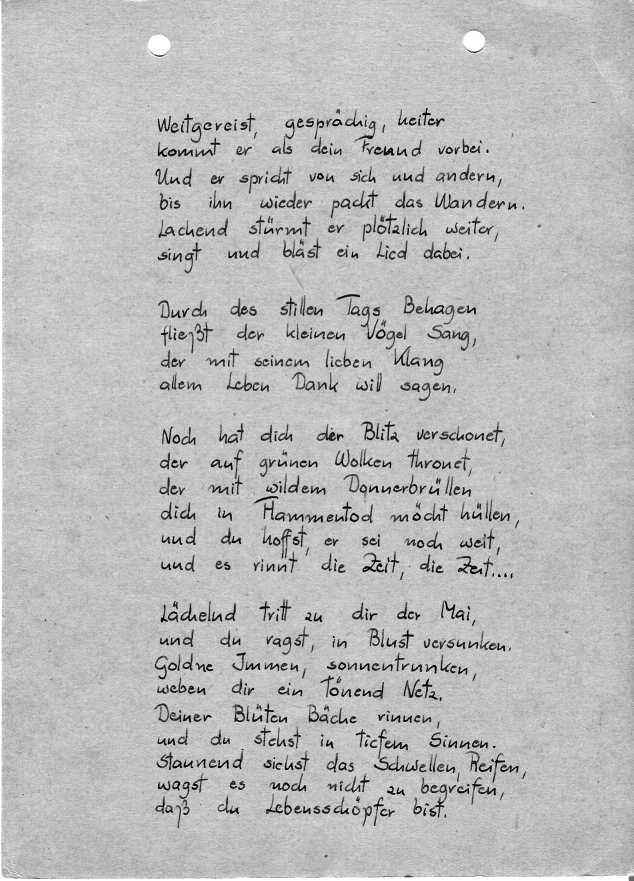 Weitgereist, gesprächig, heiter
kommt er als dein Freund vorbei.
Und er spricht von sich und andern,
bis ihn wieder packt das Wandern.
Lachend stürmt er plötzlich weiter,
singt und bläst ein Lied dabei.
Durch des stillen Tags Behagen
fließt der kleinen Vögel Sang,
der mit seinem lieben Klang
allem Leben Dank will sagen.
Noch hat dich der Blitz verschonet,
der auf grünen Wolken thronet,
der mit wildem Donnerbrüllen
dich in Flammentod möcht hüllen,
und du hoffst, er sei noch weit,
und es rinnt die Zeit, die Zeit....
Lächelnd tritt zu dir der Mai,
und du ragst, in Blust versunken.
Goldne Immen, sonnentrunken,
weben dir ein tönend Netz.
Deiner Blüten Bäche rinnen,
und du stehst in tiefem Sinnen.
Staunend siehst das Schwellen, Reifen,
wagst es noch nicht zu begreifen,
daß du Lebensschöpfer bist.